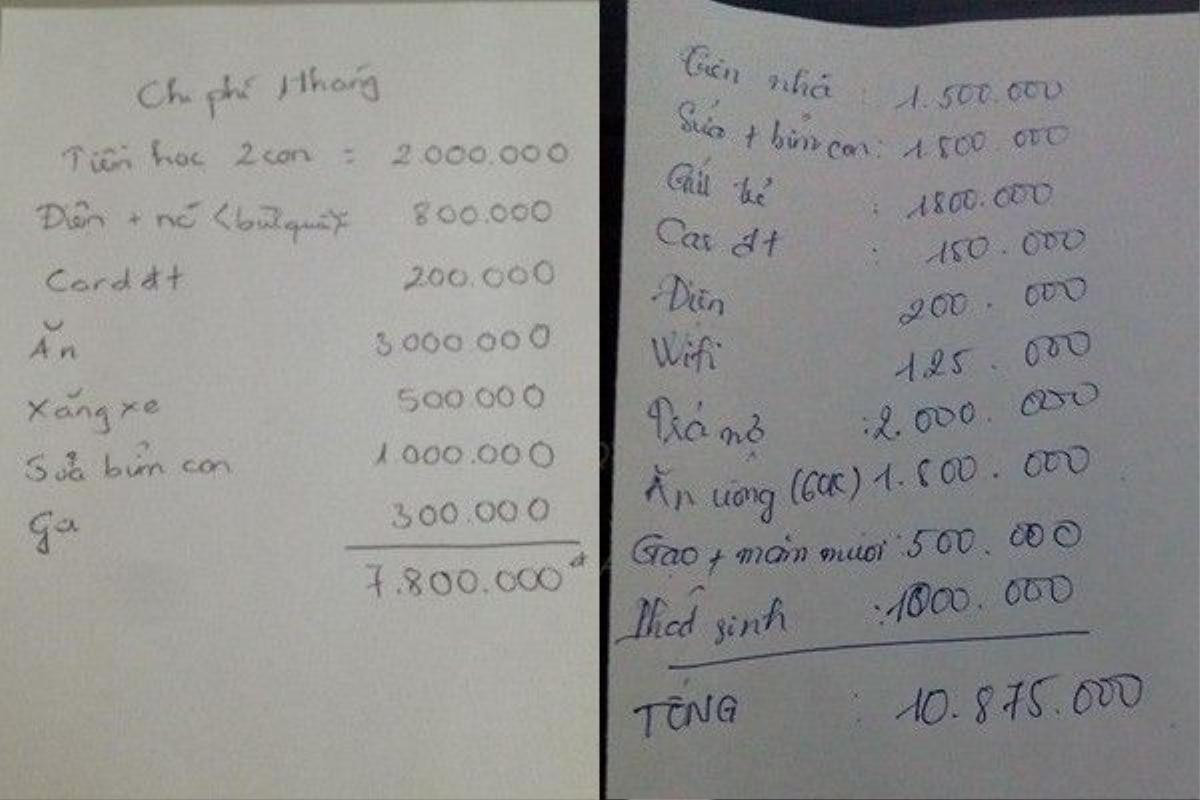 Chi phí 1 tháng
Tiền học 2 con = 2.000.000
Điện + nc < bình quân > 800.000
Card đt 200.000
Ăn 3000 000
Xăng xe 500 000
Sữa bỉm con 1 000.000
Ga 300.000
7.800.000đ
Tiền nhà : 1.500.000
Sữa + bỉm con : 1.800.000
Gửi trẻ : 1800.000
Cas đt : 150.000
Điện 200.000
Wifi 125.000
Trả nợ : 2.000.000
Ăn uống (60K) 1.800.000
Gạo + mắm muối 500.000
Phát sinh : 1000.000
TỔNG : 10.875.000